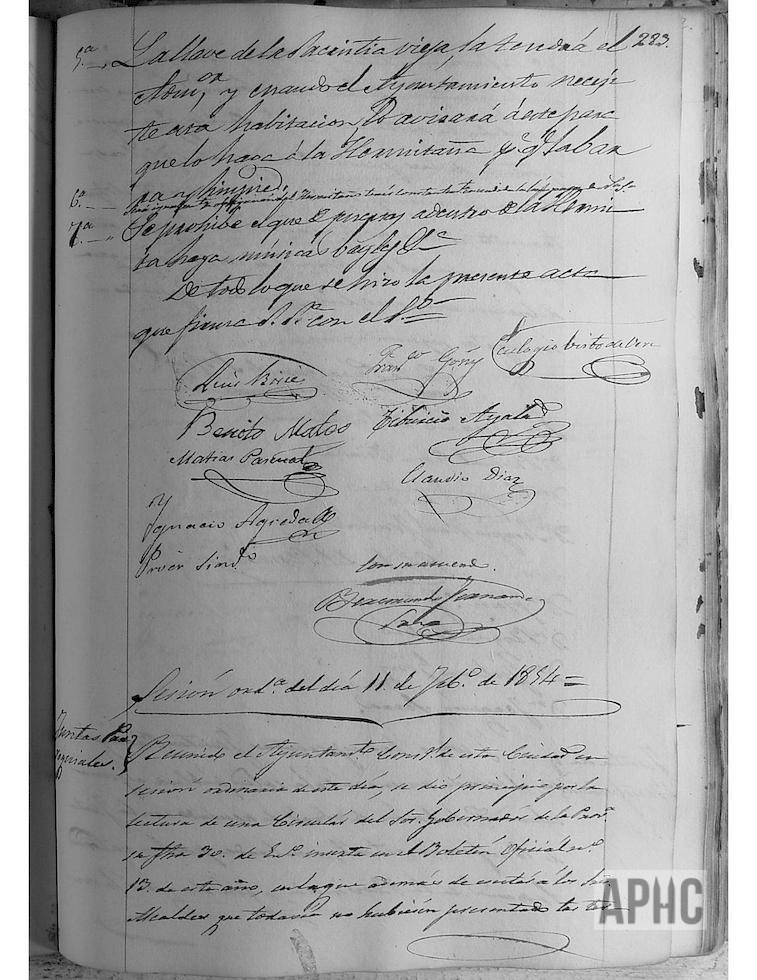 223.
5.ª La llave de la Sacristia vieja, la tendrá el
Adm.or, y cuando el Ayuntamiento necesi
te esta habitacion lo avisará á este para
que lo haga á la Hermitaña y q.e la bar
ra y limpie.
6.ª
7.ª Se prohibe el que dentro de la Hermi
ta haya música bayles &.ª
De todo lo que se hizo la presente acta
que firma S. S.ª con el
Fran.co Goñy
Eulogio Visto de Vera
Benito Mateo
Tiburcio Ayala
Matias Pascual
Claudio Diaz
Ignacio Agreda
Prior Sind.o
Con su acuerdo.
Sesión ord.ª del dia 11 de Feb.o de 1854=
Juntas Par
roquiales.
Reunido el Ayuntam.to Const.l de esta Ciudad en
sesion ordinaria de este dia, se dió principio por la
lectura de una Circular del Sor. Gobernador de la Prov.ª
su fha 30. de En.o inserta en el Boletin Oficial n.o
13. de este año, en la que además de á los
Alcaldes que todavia no hubiesen presentado las
APHC